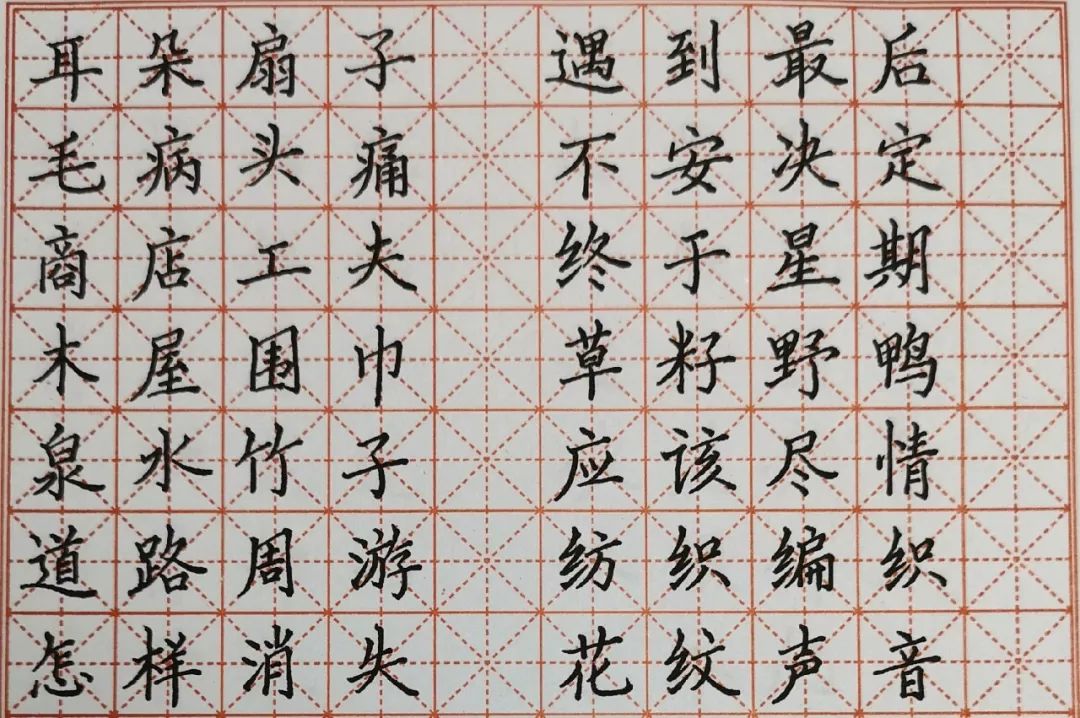 耳朵扇子 遇到最后
毛病头痛 不安决定
商店工夫 终于星期
木屋围巾 草籽野鸭
泉水竹子 应该尽情
道路周游 纺织编织
怎样消失 花纹声音